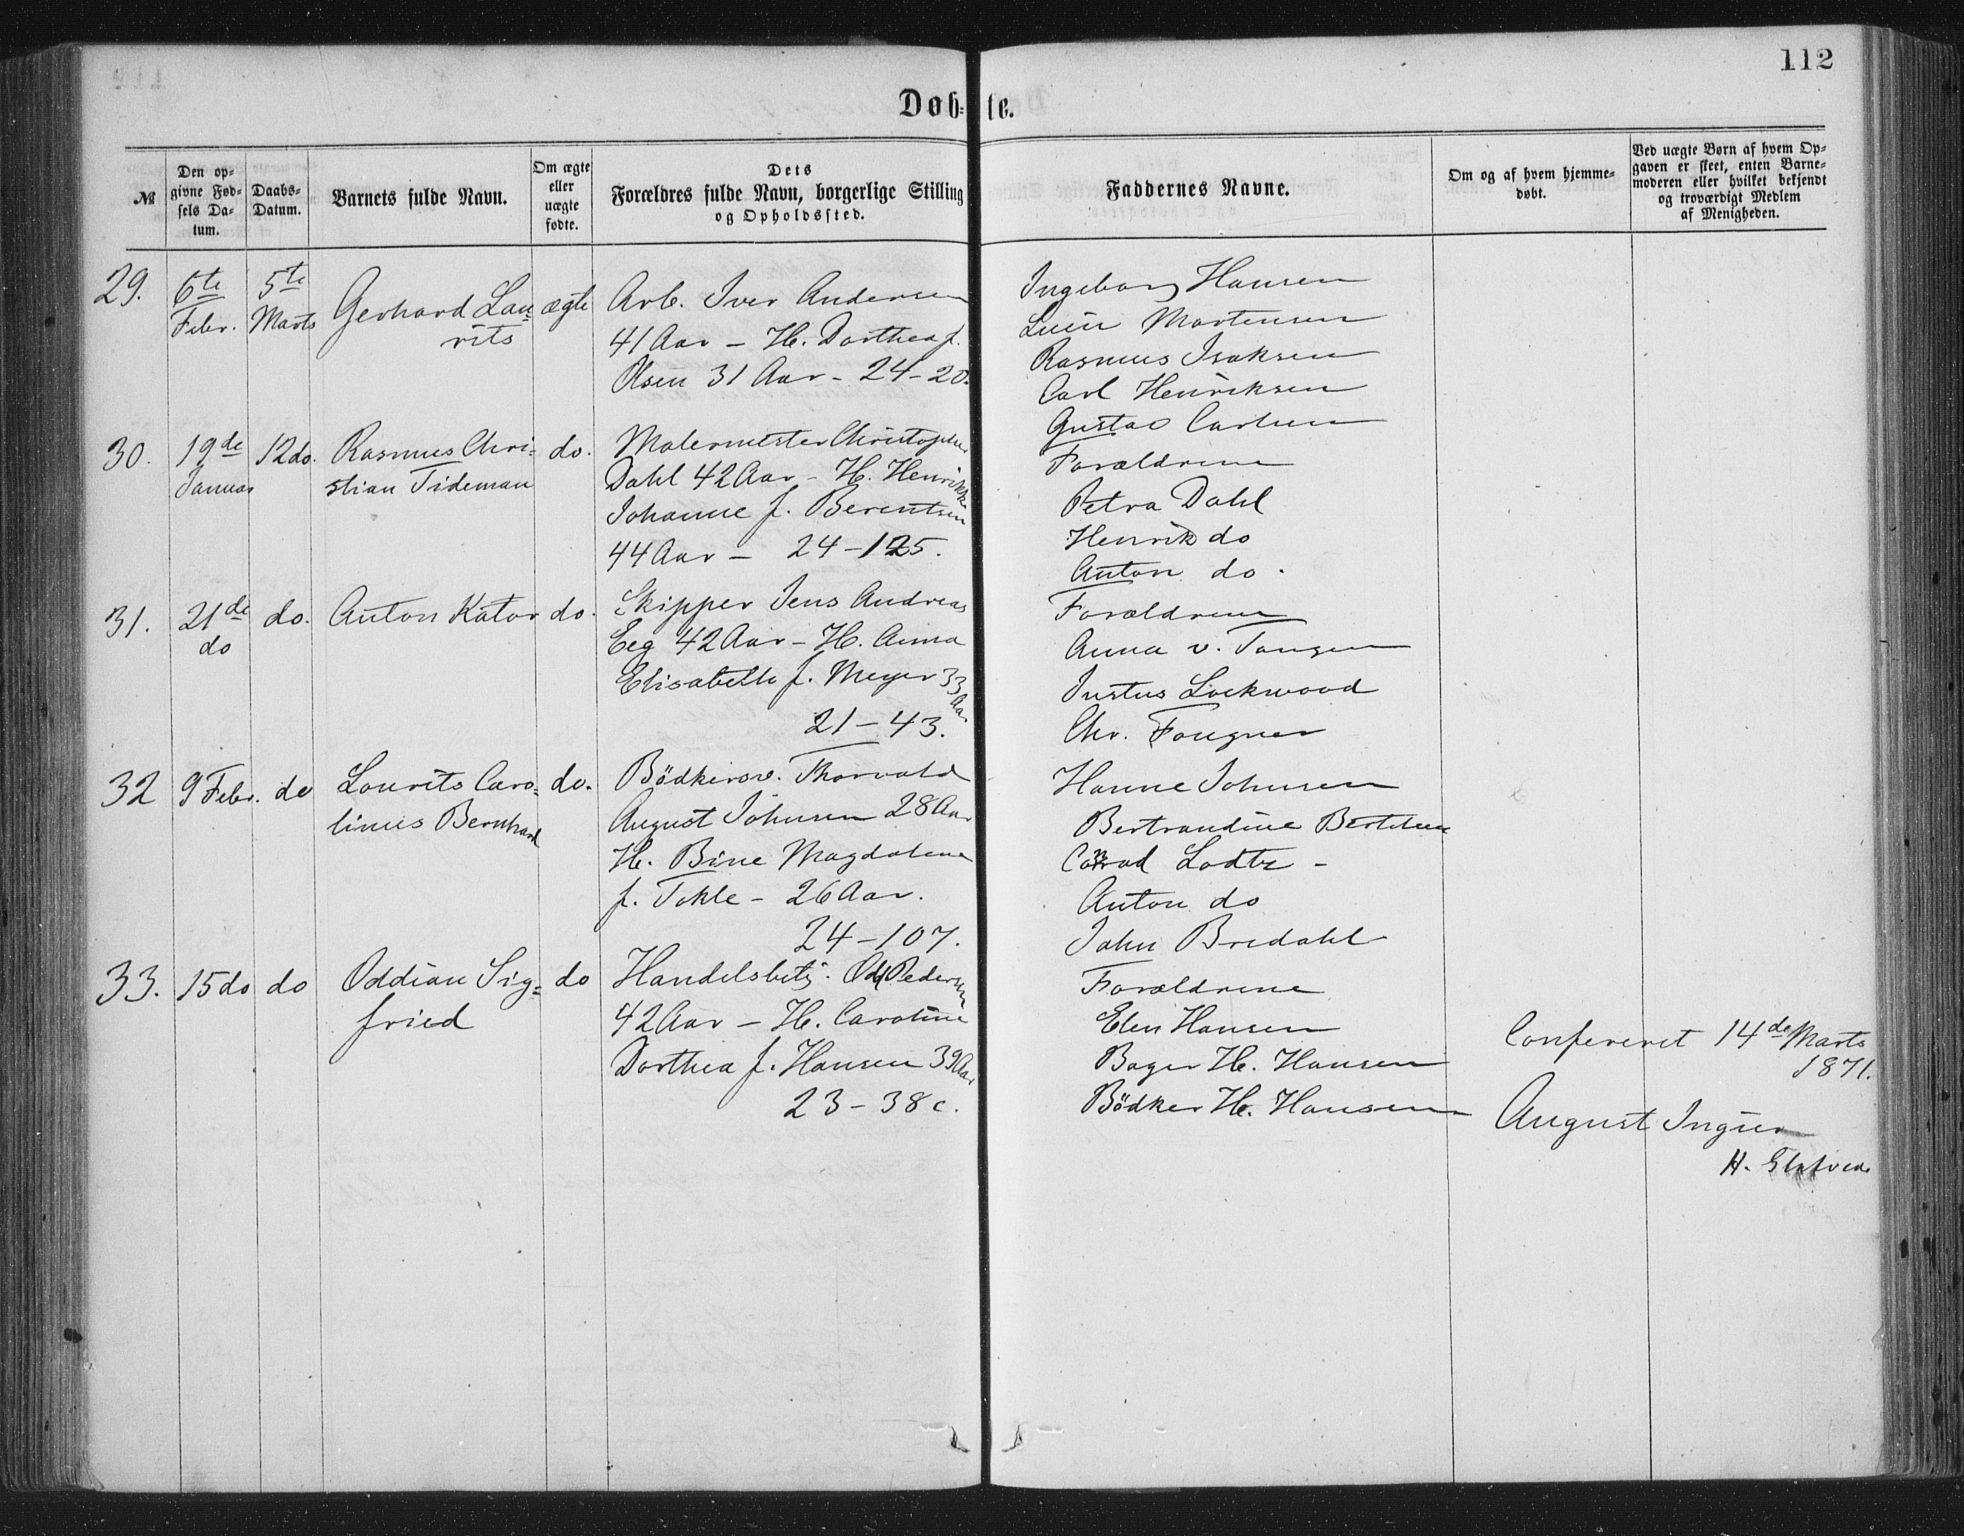 112
Døb-te.
№
Den op-
givne Fød-
sels Da-
tum.
Daabs-
Datum.
Barnets fulde Navn.
Om ægte
eller
uægte
fødte.
Dets
Forældres fulde Navn, borgerlige Stilling
og Opholdssted.
Faddernes Navne.
Om og af hvem hjemme-
døbt.
Ved uægte Børn af hvem Op-
gaven er skeet, enten Barne-
moderen eller hvilket bekjendt
og troværdigt Medlem
af Menigheden.
29.
6te
Febr.
5te
Marts
Gerhard Lau-
rits
ægte
Arb. Iver Andersen
41 Aar – H. Dorthea f.
Olsen 31 Aar – 24–20.
Ingeborg Hansen
Mortensen
Rasmus Isaksen
Carl Henriksen
Gustav Carlsen
30.
19de
Januar
12 do.
Rasmus Chri-
stian Tideman
do.
Malermester Christopher
Dahl 42 Aar – H. Henrikke
Johanne f. Berentsen
44 Aar – 24–125.
Forældrene
Petra Dahl
Henrik do
Anton do.
31.
21de
do
do.
Anton Kator
do.
Skipper Jens Andreas
Eeg 42 Aar – H. Anna
Elisabeth f. Meyer 33
Aar
21–43.
Forældrene
Anna v. Tangen
Justus Lockwood
Chr. Fougner
32
9 Febr.
do
Lourits Caro-
linus Bernhard
do.
Bödkersv. Thorvald
August Johnsen 28 Aar
H. Bine Magdalene
f. Tokle – 26 Aar.
24–107.
Hanne Johnsen
Bertrandine Bertelsen
Conrad Lodtz –
Anton do
John Bredahl
33.
15 do
do
Oddian Sig-
fried
do
Handelsbetj. Odd Pedersen
42 Aar – H. Caroline
Dorthea f. Hansen 39 Aar
23–38 c.
Forældrene
Elen Hansen
Bager H. Hansen
Bödker H. Hansen
Confereret 14de Marts
1871.
August Ingier
H.